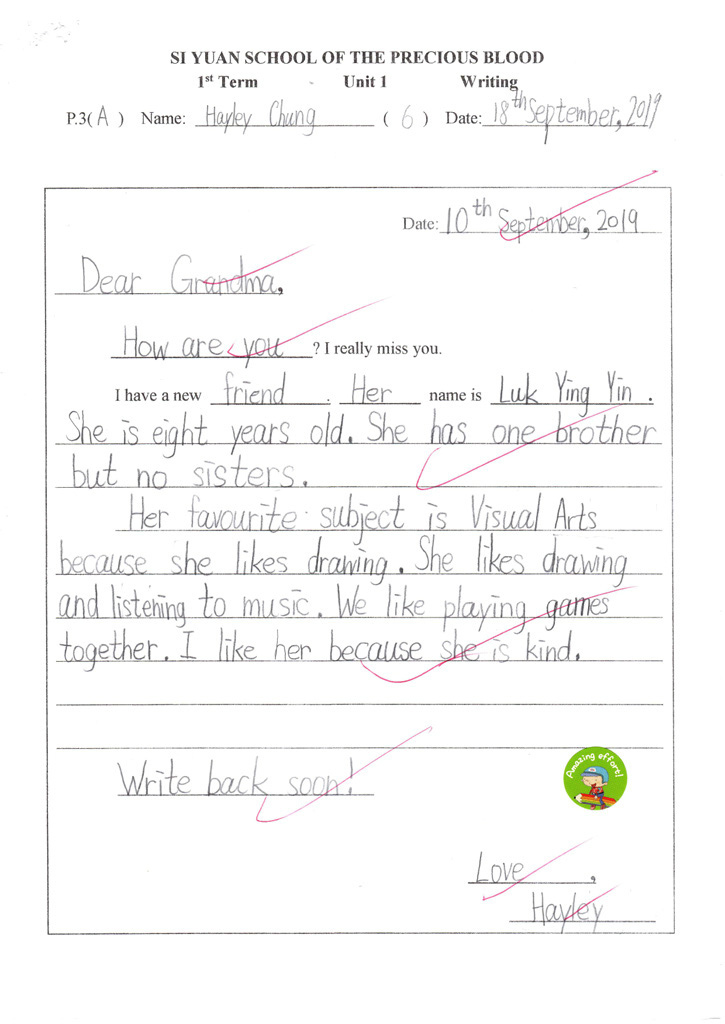 SI YUAN SCHOOL OF THE PRECIOUS BLOOD
1st Term - Unit 1 Writing
P.3( A ) Name: Hayley Chung ( 6 ) Date: 18th September, 2019
Date: 10th September, 2019
Dear Grandma,
How are you ? I really miss you.
I have a new friend . Her name is Luk Ying Yin .
She is eight years old. She has one brother
but no sisters.
Her favourite subject is Visual Arts
because she likes drawing. She likes drawing
and listening to music. We like playing games
together. I like her because she is kind.
Write back soon!
Amazing effort!
Love ,
Hayley